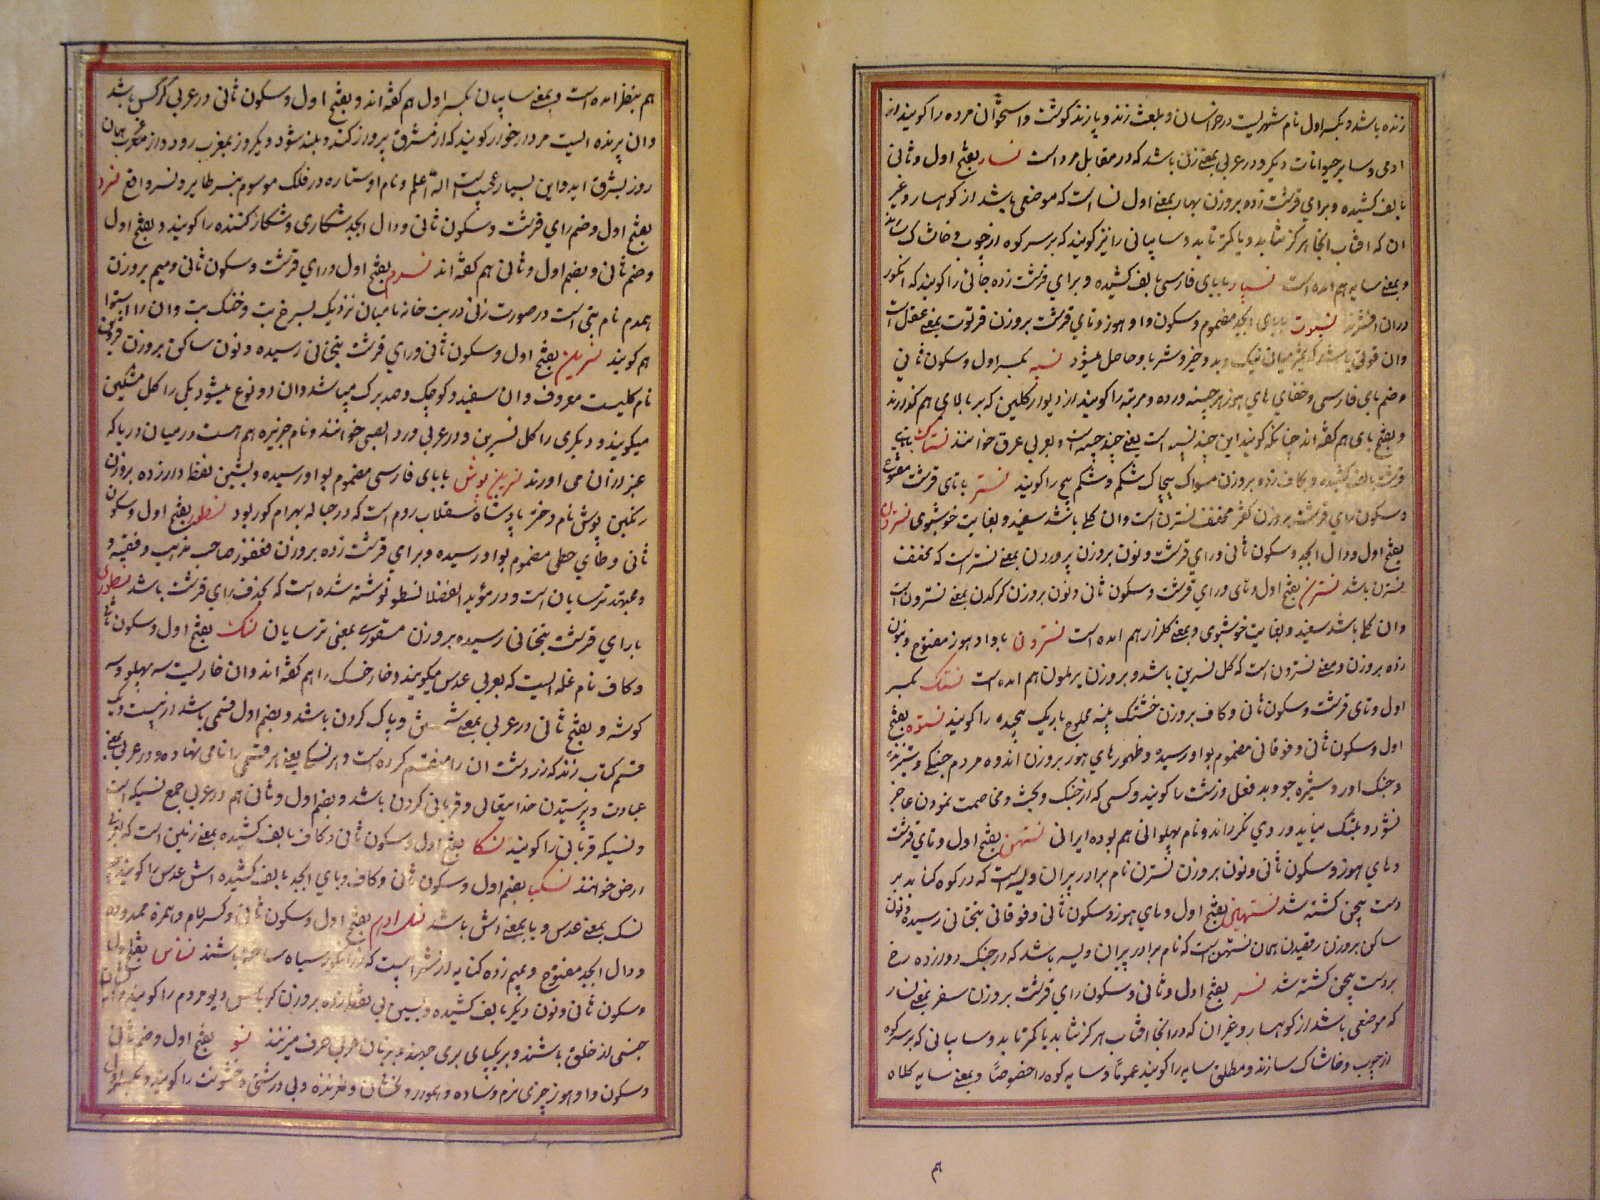 زنده باشد و بکسر اول نام شهریست در خراسان و بلغت زند و پازند گوشت و استخوان مرده را گویند از
ادمی و سایر حیوانات دیگر و در عربی بمعنی زن باشد که در مقابل مرد است نسار بفتح اول و ثانی
بالف کشیده و برای قرشت زده بر وزن بهار بمعنی اول نسا است که موضعی باشد از کوهسار و غیر
ان که افتاب انجا هرگز نتابد یا کمتر تابد و سایبانی را نیز گویند که بر سر کوه از چوب و خاشاک سازند
و بمعنی سایه هم امده است نسپار با بای فارسی بالف کشیده و برای قرشت زده جائی را گویند که انگور
دران افشرند نسبوت بابای ابجد مضموم و سکون واو هوز و تای قرشت بر وزن فرتوت بمعنی عقل است
وان قوتی باشد که تمیز میان نیک و بد و خیر و شر باو حاصل میشود نسپه بکسر اول و سکون ثانی
و ضم بای فارسی و خفای های هوز هر چینه و رده و مرتبه را گویند از دیوار گلین که بر بالای هم گذارند
و بفتح بای هم گفته اند چنانکه گویند این چند نسپه است یعنی چند چینه است و بعربی عرق خوانند نستاک بتای
قرشت بالف کشیده و بکاف زده بر وزن مسواک پیچاک شکم و شکم پیچ را گویند نستر با تای قرشت مفتوح
و سکون رای قرشت بر وزن کفتر مخفف نسترن است وان گلی باشد سفید و بغایت خوشبوی نستردن
بفتح اول و دال ابجد و سکون ثانی و رای قرشت و نون بر وزن پروردن بمعنی نستر است که مخفف
نسترن باشد نسترن بفتح اول و تای و رای قرشت و سکون ثانی و نون بر وزن کرکدن بمعنی نسترون است
وان گلی باشد سفید و بغایت خوشبوی و بمعنی گلزار هم امده است نسترون با واو هوز مفتوح و بنون
زده بر وزن و معنی نسترون است که گل نسرین باشد و بر وزن پرلمون هم امده است نستک بکسر
اول و تای قرشت و سکون ثانی و کاف بر وزن خشتک پنبه محلوج باریک پیچیده را گویند نستوه بفتح
اول و سکون ثانی و فوقانی مضموم بواو رسیده و ظهور های هوز بر وزن اندوه مردم جنگی و ستیزنده
و جنگ اور و ستیزه جو و بد فعل و زشت را گویند و کسی که از جنگ و بحث و مخاصمت نمودن عاجز
نشود و بتنگ نیاید و روی نگرداند و نام پهلوانی هم بوده ایرانی نستهن بفتح اول و تای قرشت
و های هوز و سکون ثانی و نون بر وزن نسترن نام برادر پیران ویسه است که در کوه کنابد بر
دست بیژن کشته شد نستهین بفتح اول و های هوز و سکون ثانی و فوقانی بتحتانی رسیده و نون
ساکن بر وزن رقیدن همان نستهن است که نام برادر پیران ویسه باشد که در جنگ دوازده رخ
بر دست بیژن کشته شد نسر بفتح اول و ثانی و سکون رای قرشت بر وزن سفر بمعنی نسار
که موضعی باشد از کوهسار و غیر ان که در انجا افتاب هرگز نتابد یا کمتر تابد و سایبانی که بر سر کوه
از چوب و خاشاک سازند و مطلق سایه را گویند عموماً و سایه کوه را خصوصاً و بمعنی سایه کلاه
هم
هم بنظر امده است و بمعنی سایبان بکسر اول هم گفته اند و بفتح اول و سکون ثانی در عربی کرگس باشد
وان پرنده ایست مردار خوار گویند که از مشرق پرواز کند و بلند شود و یکروز بمغرب رود و از مغرب همان
روز بمشرق اید و این بسیار عجیب است الله اعلم و نام دو ستاره در فلک موسوم بنسر طایر و نسر واقع نسرد
بفتح اول و ضم رای قرشت و سکون ثانی و دال ابجد شکاری و شکار کننده را گویند و بفتح اول
و ضم ثانی و بضم اول و ثانی هم گفته اند نسرم بفتح اول و رای قرشت و سکون ثانی و میم بر وزن
همدم نام بتی است در صورت زنی در بت خانه نامیان نزدیک بسرخ بت و خنک بت وان را استوا
هم گویند نسرین بفتح اول و سکون ثانی و رای قرشت بتحتانی رسیده و نون ساکن بر وزن قزوین
نام گلیست معروف وان سفید و کوچک و صد برگ میباشد وان دو نوع میشود یکی را گل مشکین
میگویند و دیگری را گل نسرین و در عربی ورد الصینی خوانند و نام جزیره هم هست در میان دریا که
عنبر از ان می اورند نسرین پوش با بای فارسی مضموم بواو رسیده و بشین نقطه دار زده بر وزن
رنگین پوش نام دختر پادشاه سقلاب روم است که در حباله بهرام گور بود نسطور بفتح اول و سکون
ثانی و طای حطی مضموم بواو رسیده و برای قرشت زده بر وزن فغفور صاحب مذهب و فقیه و
و مجتهد ترسایان است و در مؤید الفضلا نسطو نوشته شده است که بحذف رای قرشت باشد نسطوری
با رای قرشت بتحتانی رسیده بر وزن مستوری بمعنی ترسایان نسک بفتح اول و سکون ثانی
و کاف نام غله ایست که بعربی عدس میگویند و خار خسک را هم گفته اند وان خاریست سه پهلو و سه
گوشه و بفتح ثانی در عربی بمعنی شستن و پاک کردن باشد و بضم اول قسمی باشد از بیست و یک
قسم کتاب زند که زردشت ان را منقسم کرده است و هر نسکی یعنی هر قسمی را نامی نهاده و در عربی بمعنی
عبادت و پرستیدن خدایتعالی و قربانی کردن باشد و بضم اول و ثانی هم در عربی جمع نسیکه است
و نسیکه قربانی را گویند نسکا بفتح اول و سکون ثانی و کاف بالف کشیده بمعنی زمین است که بعربی
ارض خوانند نسکبا بفتح اول و سکون ثانی و کاف و بای ابجد بالف کشیده اش عدس را گویند چه
نسک بمعنی عدس و با بمعنی اش باشد نسل ادم بفتح اول و سکون ثانی و کسر لام و همزه ممدوده
و دال ابجد مفتوح و بمیم زده کنایه از بشر است نسناس بفتح اول
و سکون ثانی و نون دیگر بالف کشیده و بسین بی نقطه زده بر وزن کرباس دیو مردم را گویند
جنسی از خلق باشند و بر یکپای بری جهند و بزبان عربی حرف میزنند نسو بفتح اول و ضم ثانی
و سکون واو هوز چیزی نرم و ساده و هموار و لخشان و لغزنده و بی درشتی و خشونت را گویند و بکسر اول